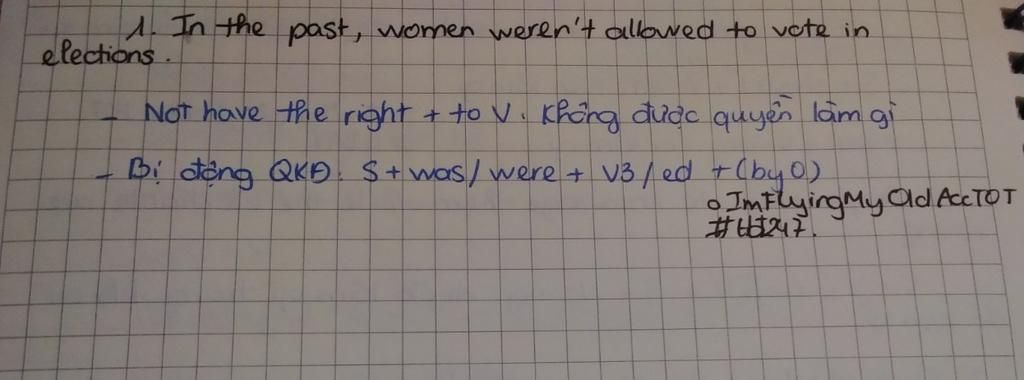 1. In the past, women weren't allowed to vote in
elections.
- Not have the right + to V. Không được quyền làm gì
- Bị động QKĐ: S + was/were + V3/ed + (by O)
o ImFlyingMyOldAccTOT